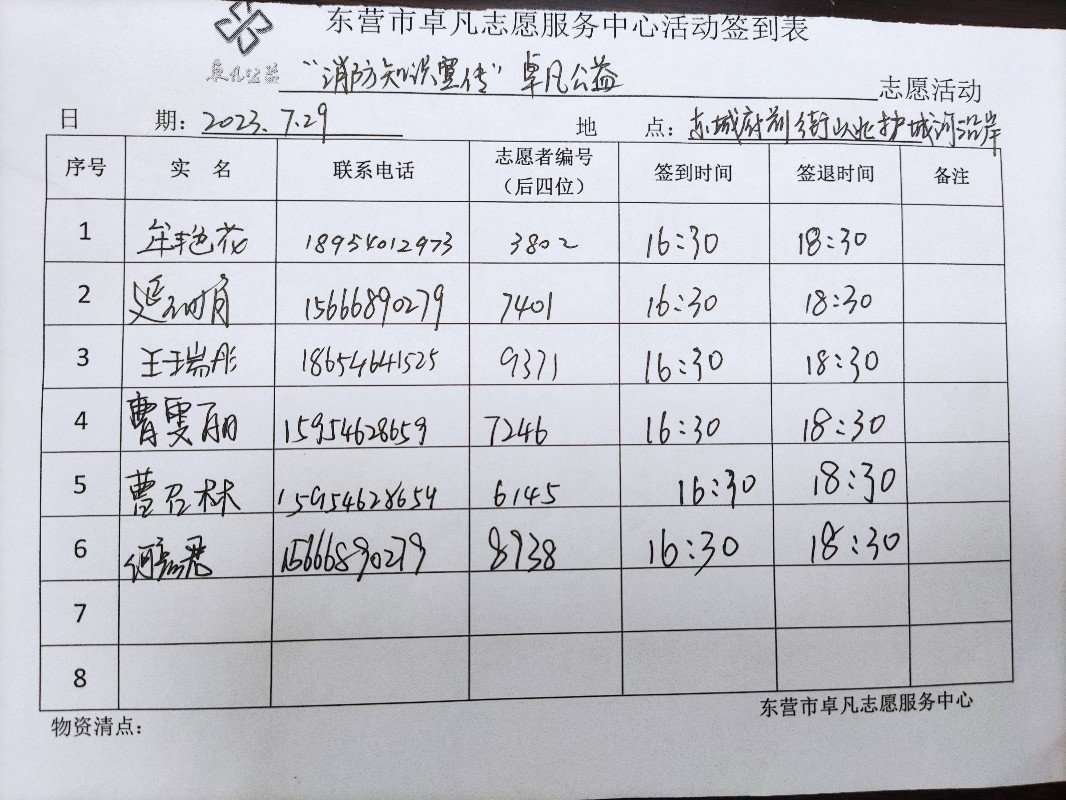 东营市卓凡志愿服务中心活动签到表
卓凡公益
“消防知识宣传”卓凡公益 志愿活动
日 期：2023.7.29 地 点：东城府前街以北护城河沿岸
序号 实 名 联系电话 志愿者编号（后四位） 签到时间 签退时间 备注
1 牟艳花 18954012973 3802 16:30 18:30
2 15666890279 7401 16:30 18:30
3 王瑞彤 18654641525 9371 16:30 18:30
4 曹雯丽 15954628659 7246 16:30 18:30
5 曹召林 15954628659 6145 16:30 18:30
6 15666890279 8938 16:30 18:30
7
8
物资清点： 东营市卓凡志愿服务中心